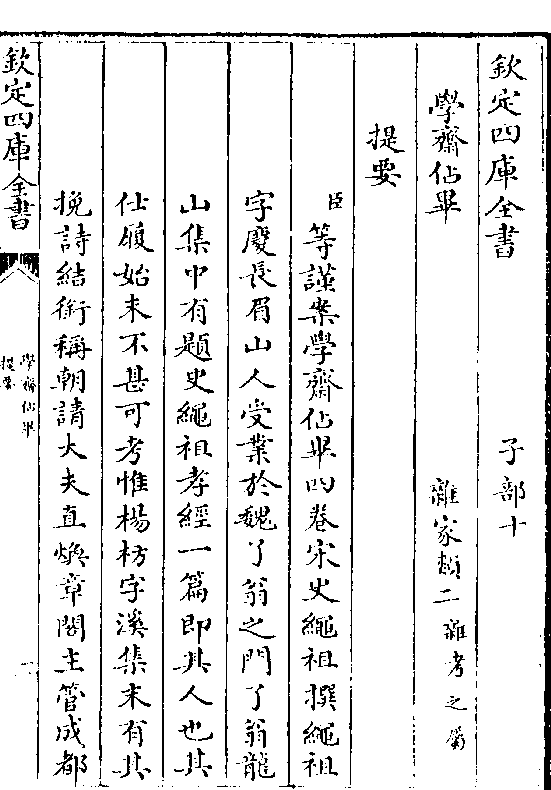 欽定四庫全書　子部十
學齋佔畢　雜家類二雜考之屬
提要
臣等謹案學齋佔畢四卷宋史繩祖撰繩祖
字慶長眉山人受業於魏了翁之門了翁龍
山集中有題史繩祖孝經一篇即其人也其
仕履始末不甚可考惟楊枋字溪集末有其
挽詩結銜稱朝請大夫直煥章閣主管成都
欽定四庫全書
學齋佔畢
提要
一